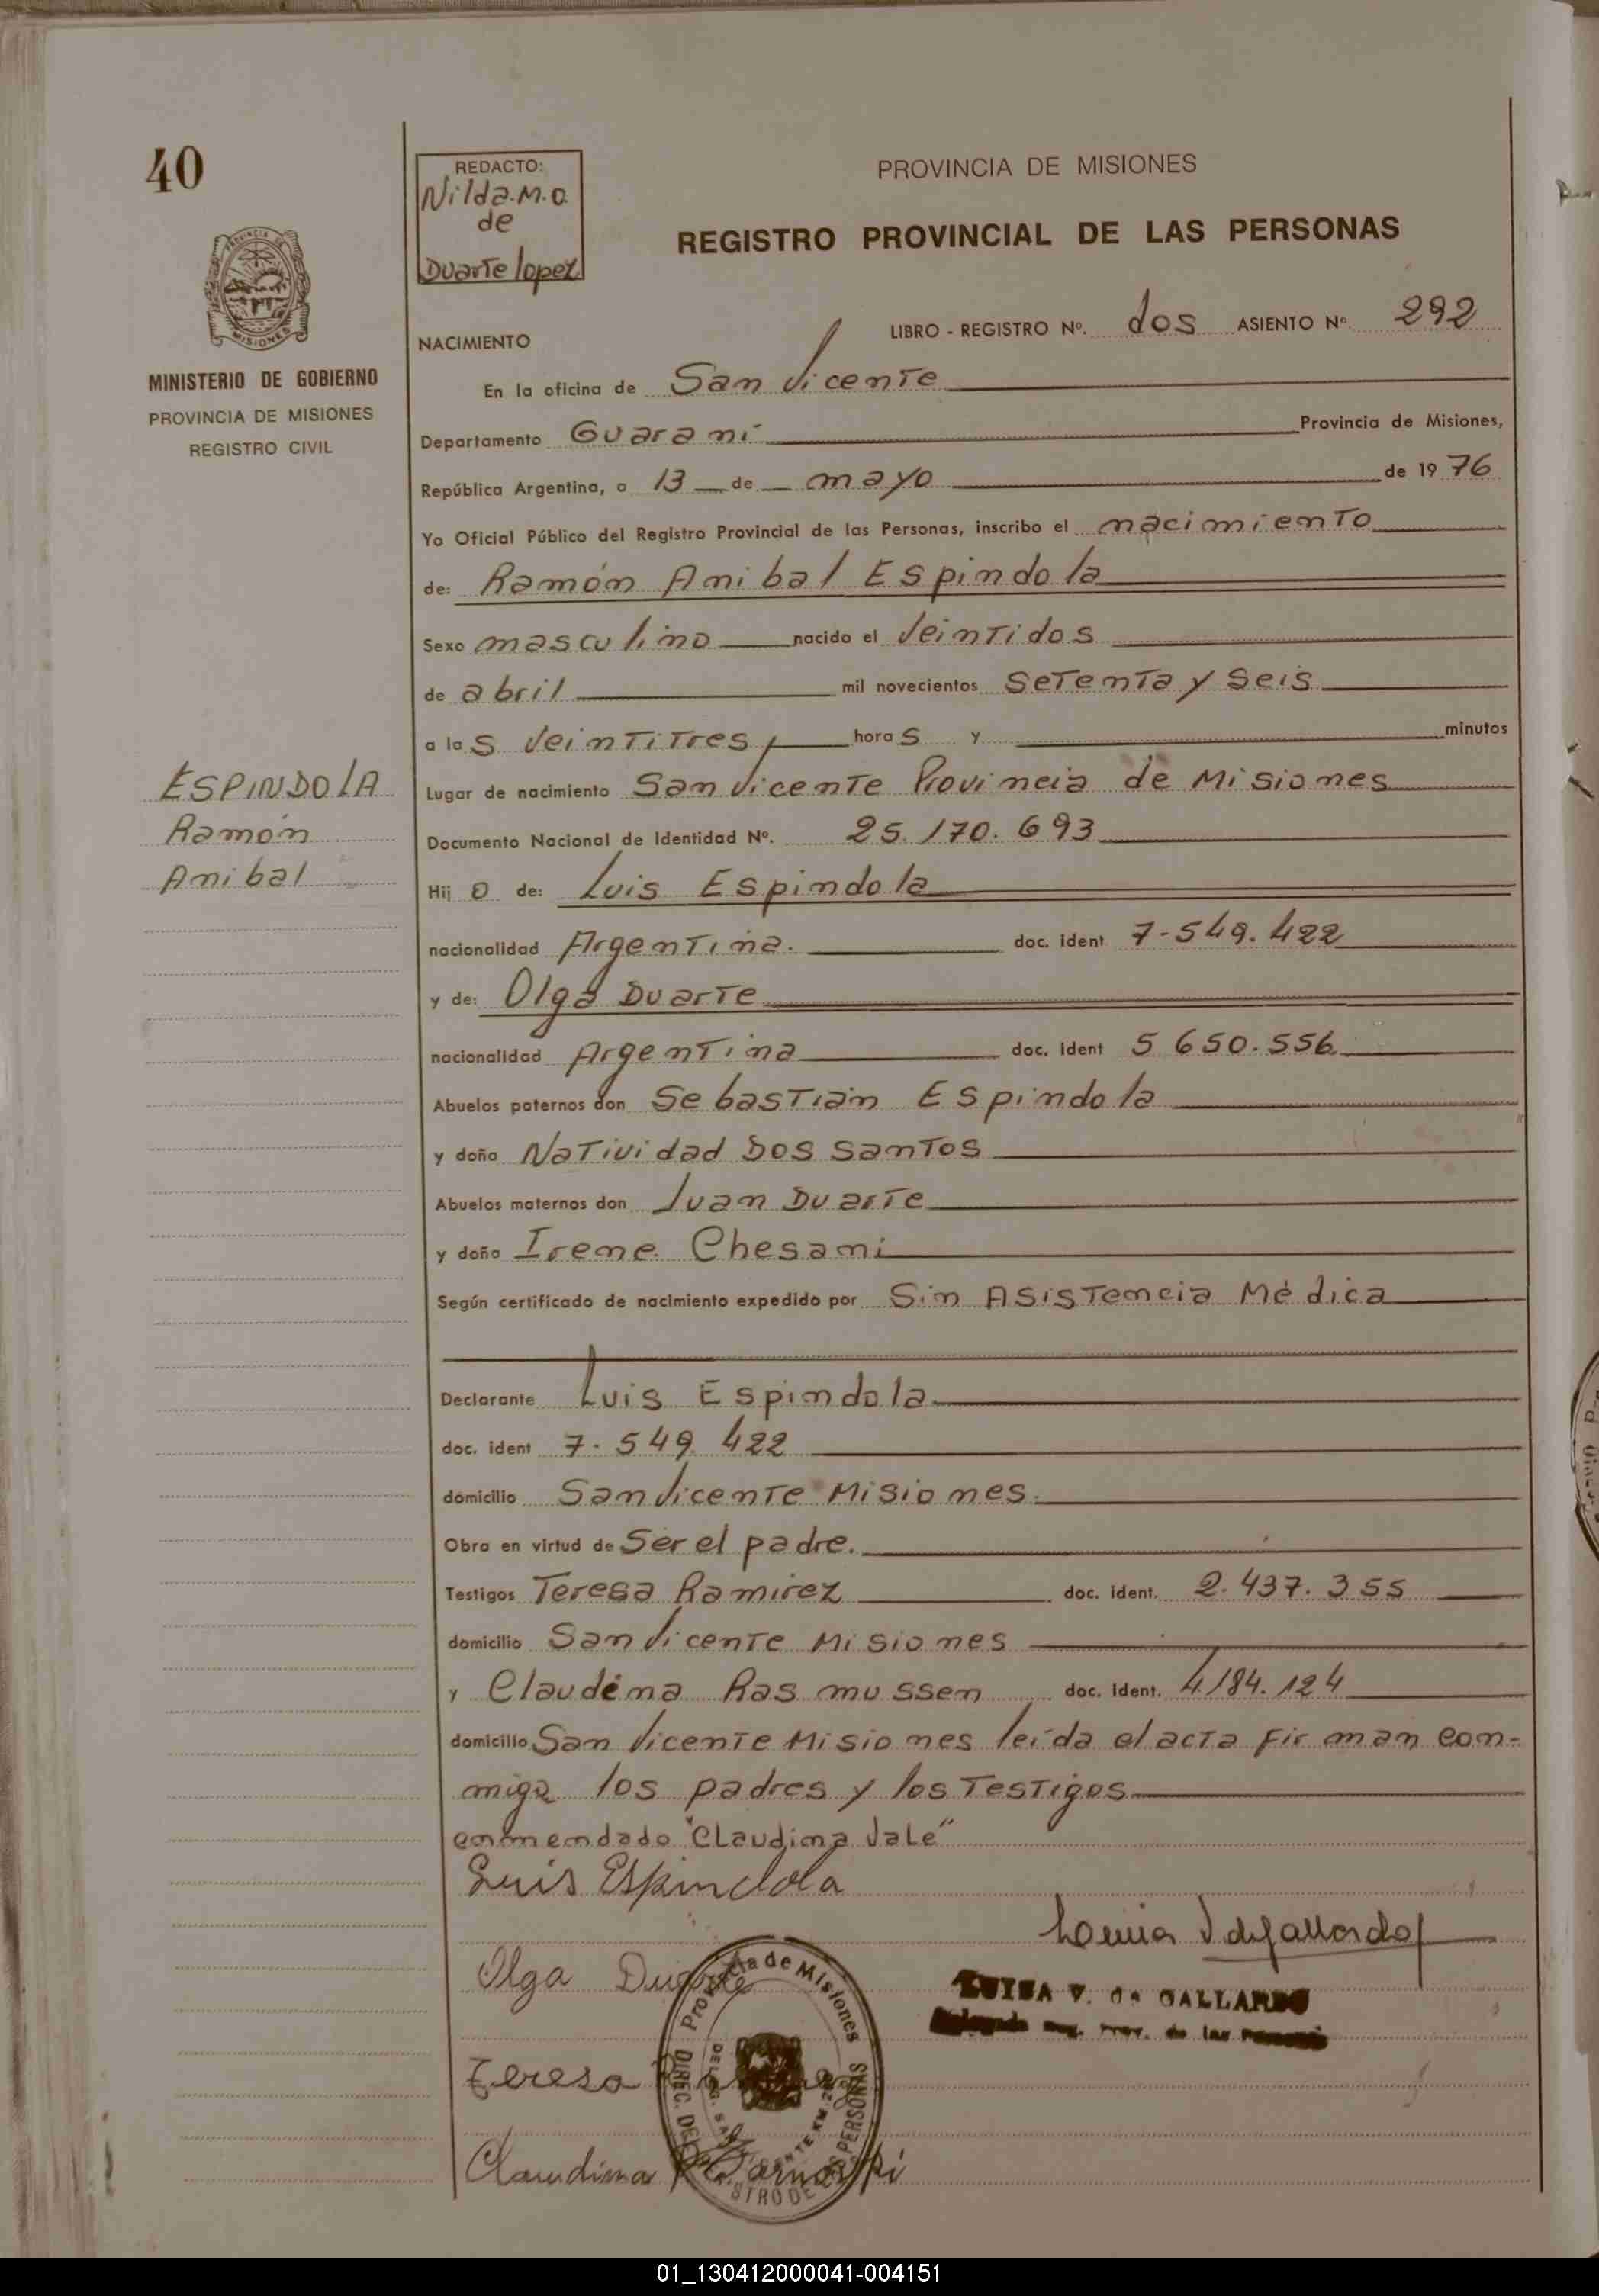 40
REDACTO:
Nilda.M.O.
de
Duarte lopez
PROVINCIA DE MISIONES
REGISTRO PROVINCIAL DE LAS PERSONAS
PROVINCIA DE
MISIONES
MINISTERIO DE GOBIERNO
PROVINCIA DE MISIONES
REGISTRO CIVIL
LIBRO - REGISTRO Nº. dos ASIENTO Nº 292
NACIMIENTO
En la oficina de San Vicente
Departamento Guaraní Provincia de Misiones,
República Argentina, a 13 de mayo de 19 76
Yo Oficial Público del Registro Provincial de las Personas, inscribo el nacimiento
de: Ramón Anibal Espindola
Sexo masculino nacido el Veintidos
de abril mil novecientos Setenta y Seis
a las Veintitres, horas y minutos
ESPINDOLA
Ramón
Anibal
Lugar de nacimiento San Vicente Provincia de Misiones
Documento Nacional de Identidad Nº. 25.170.693
Hijo de: Luis Espindola
nacionalidad Argentina. doc. ident 7-549.422
y de: Olga Duarte
nacionalidad Argentina doc. ident 5 650.556
Abuelos paternos don Sebastián Espindola
y doña Natividad Dos Santos
Abuelos maternos don Juan Duarte
y doña Irene Chesani
Según certificado de nacimiento expedido por Sin Asistencia Médica
Declarante Luis Espindola
doc. ident 7.549.422
domicilio San Vicente Misiones.
Obra en virtud de Ser el padre.
Testigos Teresa Ramirez doc. ident. 2.437.355
domicilio San Vicente Misiones
y Claudina Rasmussen doc. ident. 4.184.124
domicilio San Vicente Misiones leída el acta firman con-
migo los padres y los Testigos
enmendado "Claudina Vale"
Luis Espindola
Olga Duarte
LUISA V. de GALLARDO
Provincia de Misiones
Teresa
Claudina
01_130412000041-004151